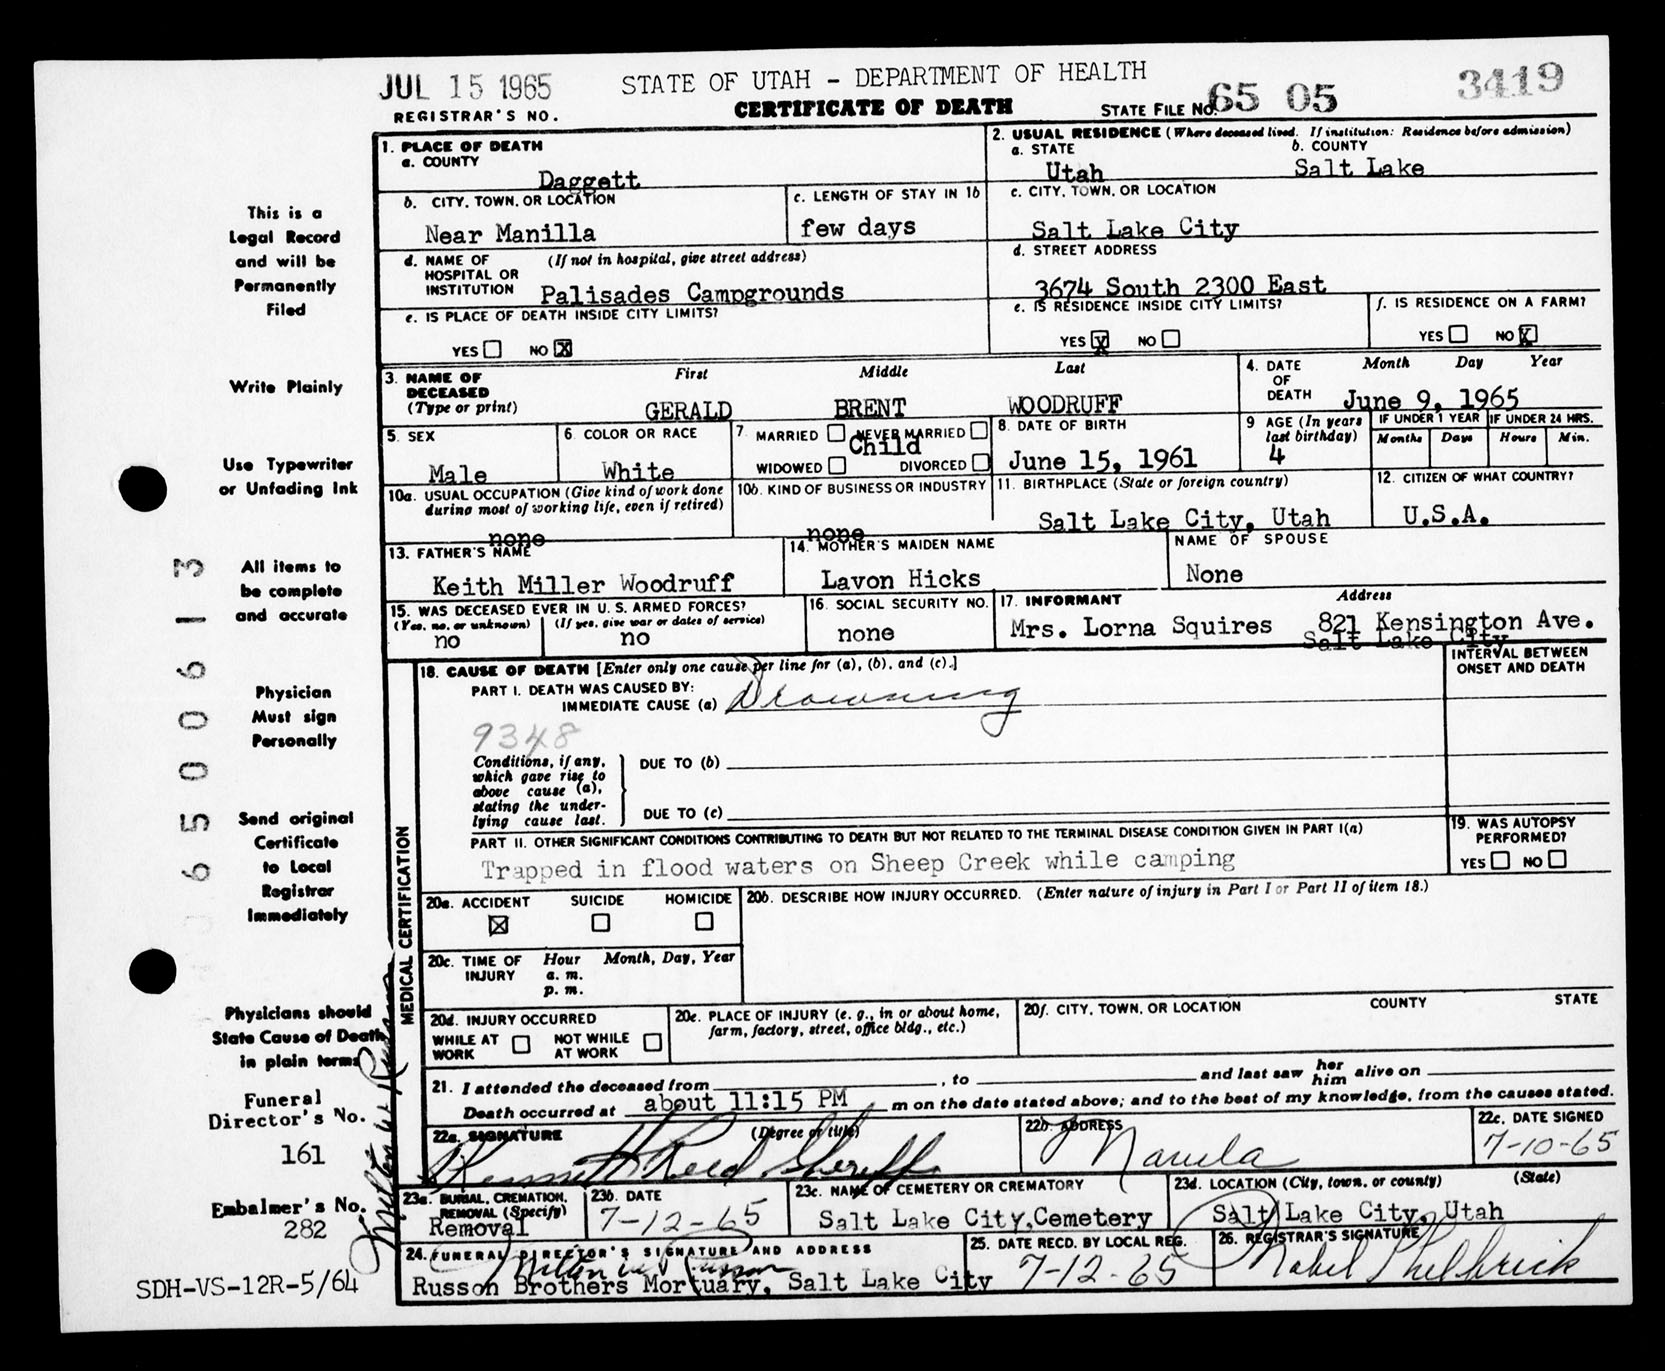 JUL 15 1965
STATE OF UTAH - DEPARTMENT OF HEALTH
3419
REGISTRAR'S NO.
CERTIFICATE OF DEATH
STATE FILE NO. 65 05
This is a
Legal Record
and will be
Permanently
Filed
Write Plainly
Use Typewriter
or Unfading Ink
All items to
be complete
and accurate
Physician
Must sign
Personally
Send original
Certificate
to Local
Registrar
Immediately
Physicians should
State Cause of Death
in plain terms
Funeral
Director's No.
161
Embalmer's No.
282
SDH-VS-12R-5/64
6500613
1. PLACE OF DEATH
a. COUNTY
Daggett
2. USUAL RESIDENCE (Where deceased lived. If institution: Residence before admission)
a. STATE
Utah
b. COUNTY
Salt Lake
b. CITY, TOWN, OR LOCATION
Near Manilla
c. LENGTH OF STAY IN 1b
few days
c. CITY, TOWN, OR LOCATION
Salt Lake City
d. NAME OF (If not in hospital, give street address)
HOSPITAL OR
INSTITUTION Palisades Campgrounds
d. STREET ADDRESS
3674 South 2300 East
e. IS PLACE OF DEATH INSIDE CITY LIMITS?
YES NO X
e. IS RESIDENCE INSIDE CITY LIMITS?
YES X NO
f. IS RESIDENCE ON A FARM?
YES NO X
3. NAME OF
DECEASED
(Type or print)
First Middle Last
GERALD BRENT WOODRUFF
4. DATE
OF
DEATH
Month Day Year
June 9, 1965
5. SEX
Male
6. COLOR OR RACE
White
7. MARRIED NEVER MARRIED
Child
WIDOWED DIVORCED
8. DATE OF BIRTH
June 15, 1961
9 AGE (In years
last birthday)
4
IF UNDER 1 YEAR
Months Days
IF UNDER 24 HRS.
Hours Min.
10a. USUAL OCCUPATION (Give kind of work done
during most of working life, even if retired)
none
10b. KIND OF BUSINESS OR INDUSTRY
none
11. BIRTHPLACE (State or foreign country)
Salt Lake City, Utah
12. CITIZEN OF WHAT COUNTRY?
U.S.A.
13. FATHER'S NAME
Keith Miller Woodruff
14. MOTHER'S MAIDEN NAME
Lavon Hicks
NAME OF SPOUSE
None
15. WAS DECEASED EVER IN U. S. ARMED FORCES?
(Yes, no, or unknown) (If yes, give war or dates of service)
no no
16. SOCIAL SECURITY NO.
none
17. INFORMANT Address
Mrs. Lorna Squires 821 Kensington Ave.
Salt Lake City
MEDICAL CERTIFICATION
18. CAUSE OF DEATH [Enter only one cause per line for (a), (b), and (c).]
PART I. DEATH WAS CAUSED BY:
IMMEDIATE CAUSE (a) Drowning
INTERVAL BETWEEN
ONSET AND DEATH
9348
Conditions, if any,
which gave rise to
above cause (a),
stating the under-
lying cause last.
DUE TO (b)
DUE TO (c)
PART II. OTHER SIGNIFICANT CONDITIONS CONTRIBUTING TO DEATH BUT NOT RELATED TO THE TERMINAL DISEASE CONDITION GIVEN IN PART I(a)
Trapped in flood waters on Sheep Creek while camping
19. WAS AUTOPSY
PERFORMED?
YES NO
20a. ACCIDENT SUICIDE HOMICIDE
X
20b. DESCRIBE HOW INJURY OCCURRED. (Enter nature of injury in Part I or Part II of item 18.)
20c. TIME OF
INJURY
Hour Month, Day, Year
a. m.
p. m.
20d. INJURY OCCURRED
WHILE AT
WORK
NOT WHILE
AT WORK
20e. PLACE OF INJURY (e. g., in or about home,
farm, factory, street, office bldg., etc.)
20f. CITY, TOWN, OR LOCATION COUNTY STATE
21. I attended the deceased from , to and last saw her him alive on
Death occurred at about 11:15 PM m on the date stated above; and to the best of my knowledge, from the causes stated.
22a. SIGNATURE (Degree or title)
Kenneth Reed Sheriff
22b. ADDRESS
Manila
22c. DATE SIGNED
7-10-65
23a. BURIAL, CREMATION,
REMOVAL (Specify)
Removal
23b. DATE
7-12-65
23c. NAME OF CEMETERY OR CREMATORY
Salt Lake City, Cemetery
23d. LOCATION (City, town, or county) (State)
Salt Lake City, Utah
24. FUNERAL DIRECTOR'S SIGNATURE AND ADDRESS
Milton W Russon
Russon Brothers Mortuary, Salt Lake City
25. DATE RECD. BY LOCAL REG.
7-12-65
26. REGISTRAR'S SIGNATURE
Mabel Philbrick
Milton W Russon